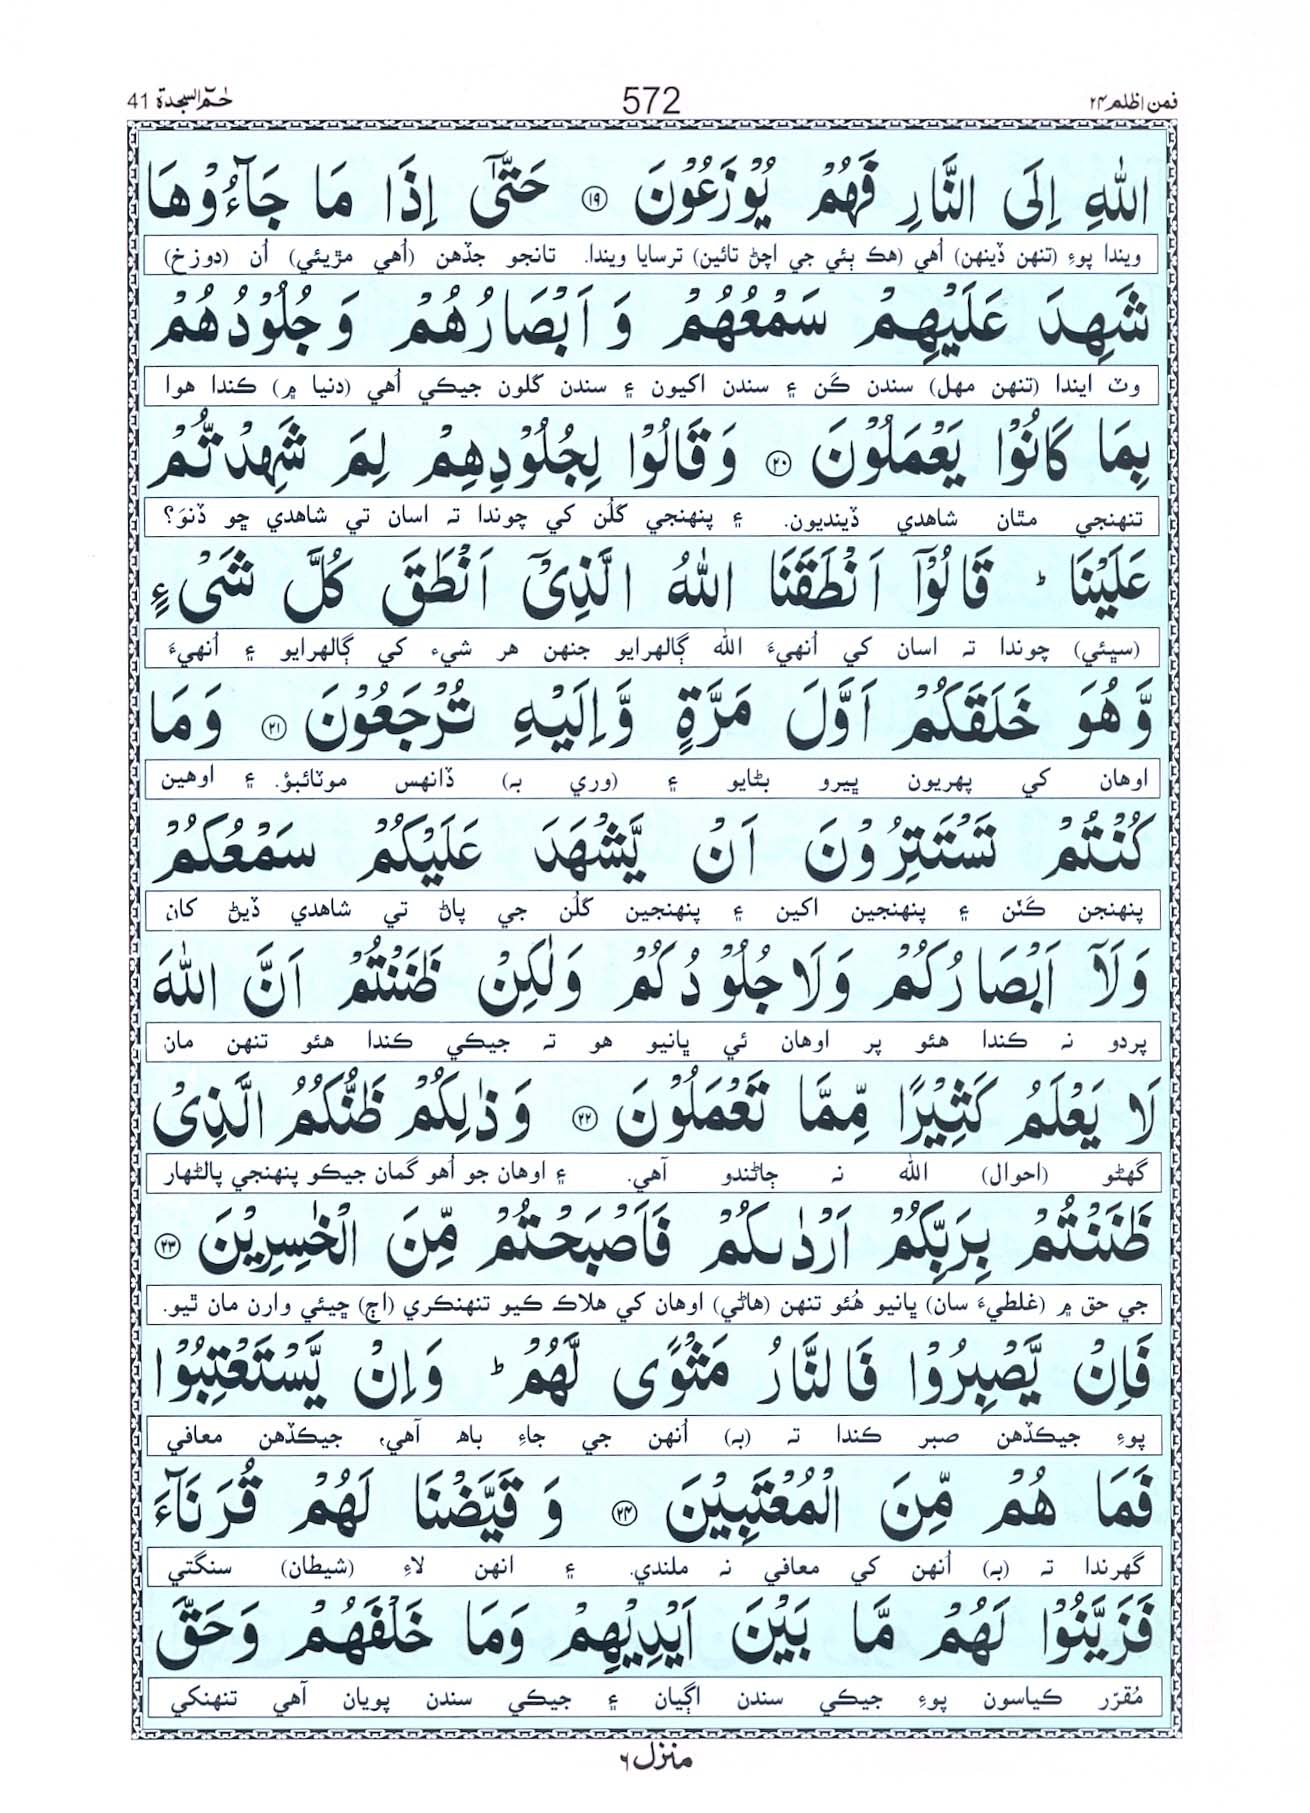 فمن اظلم ۲۴ 572 حٰمٓ السجدة 41
اللّٰهِ اِلَى النَّارِ فَهُمْ يُوْزَعُوْنَ ۝۱۹ حَتّٰٓى اِذَا مَا جَآءُوْهَا
ويندا پوءِ (تنهن ڏينهن) اُهي (هڪ ٻئي جي اچڻ تائين) ترسايا ويندا. تانجو جڏهن (اُهي مڙيئي) اُن (دوزخ)
شَهِدَ عَلَيْهِمْ سَمْعُهُمْ وَ اَبْصَارُهُمْ وَ جُلُوْدُهُمْ
وٽ ايندا (تنهن مهل) سندن ڪَن ۽ سندن اکيون ۽ سندن کلون جيڪي اُهي (دنيا ۾) ڪندا هوا
بِمَا كَانُوْا يَعْمَلُوْنَ ۝۲۰ وَ قَالُوْا لِجُلُوْدِهِمْ لِمَ شَهِدْتُّمْ
تنهنجي مٿان شاهدي ڏينديون. ۽ پنهنجي کلُن کي چوندا تہ اسان تي شاهدي ڇو ڏنوَ؟
عَلَيْنَا ؕ قَالُوْٓا اَنْطَقَنَا اللّٰهُ الَّذِيْٓ اَنْطَقَ كُلَّ شَيْءٍ
(سڀئي) چوندا تہ اسان کي اُنهيءَ الله ڳالهرايو جنهن هر شيءِ کي ڳالهرايو ۽ اُنهيءَ
وَّ هُوَ خَلَقَكُمْ اَوَّلَ مَرَّةٍ وَّ اِلَيْهِ تُرْجَعُوْنَ ۝۲۱ وَ مَا
اوهان کي پهريون ڀيرو بڻايو ۽ (وري بہ) ڏانهس موٽائبوُ. ۽ اوهين
كُنْتُمْ تَسْتَتِرُوْنَ اَنْ يَّشْهَدَ عَلَيْكُمْ سَمْعُكُمْ
پنهنجن ڪَنَن ۽ پنهنجين اکين ۽ پنهنجين کلُن جي پاڻ تي شاهدي ڏيڻ کان
وَ لَآ اَبْصَارُكُمْ وَ لَا جُلُوْدُكُمْ وَ لٰكِنْ ظَنَنْتُمْ اَنَّ اللّٰهَ
پردو نہ ڪندا هئو پر اوهان ئي ڀانيو هو تہ جيڪي ڪندا هئو تنهن مان
لَا يَعْلَمُ كَثِيْرًا مِّمَّا تَعْمَلُوْنَ ۝۲۲ وَ ذٰلِكُمْ ظَنُّكُمُ الَّذِيْ
گهڻو (احوال) الله نہ ڄاڻندو آهي. ۽ اوهان جو اُهو گمان جيڪو پنهنجي پالڻهار
ظَنَنْتُمْ بِرَبِّكُمْ اَرْدٰىكُمْ فَاَصْبَحْتُمْ مِّنَ الْخٰسِرِيْنَ ۝۲۳
جي حق ۾ (غلطيءَ سان) ڀانيو هُئو تنهن (هاڻي) اوهان کي هلاڪ ڪيو تنهنڪري (اڄ) ڇيئي وارن مان ٿيو.
فَاِنْ يَّصْبِرُوْا فَالنَّارُ مَثْوًى لَّهُمْ ؕ وَ اِنْ يَّسْتَعْتِبُوْا
پوءِ جيڪڏهن صبر ڪندا تہ (بہ) اُنهن جي جاءِ باھ آهي، جيڪڏهن معافي
فَمَا هُمْ مِّنَ الْمُعْتَبِيْنَ ۝۲۴ وَ قَيَّضْنَا لَهُمْ قُرَنَآءَ
گهرندا تہ (بہ) اُنهن کي معافي نہ ملندي. ۽ انهن لاءِ (شيطان) سنگتي
فَزَيَّنُوْا لَهُمْ مَّا بَيْنَ اَيْدِيْهِمْ وَ مَا خَلْفَهُمْ وَ حَقَّ
مُقرّر ڪياسون پوءِ جيڪي سندن اڳيان ۽ جيڪي سندن پويان آهي تنهنکي
منزل ۶